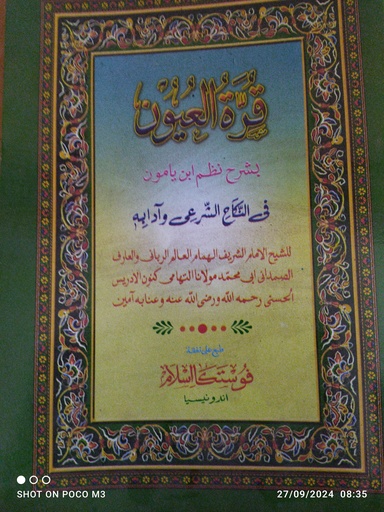 قرة العيون
بشرح نظم ابن يامون
فى النكاح الشرعى وآدابه
للشيخ الإمام الشريف الهمام العالم الربانى والعارف
الصمدانى ابى محمد مولانا التهامى كنون الادريس
الحسنى رحمه الله ورضى الله عنه وعنا به آمين
طبع على نفقة
فوستكا اسلام
اندونيسيا
SHOT ON POCO M3
27/09/2024 08:35